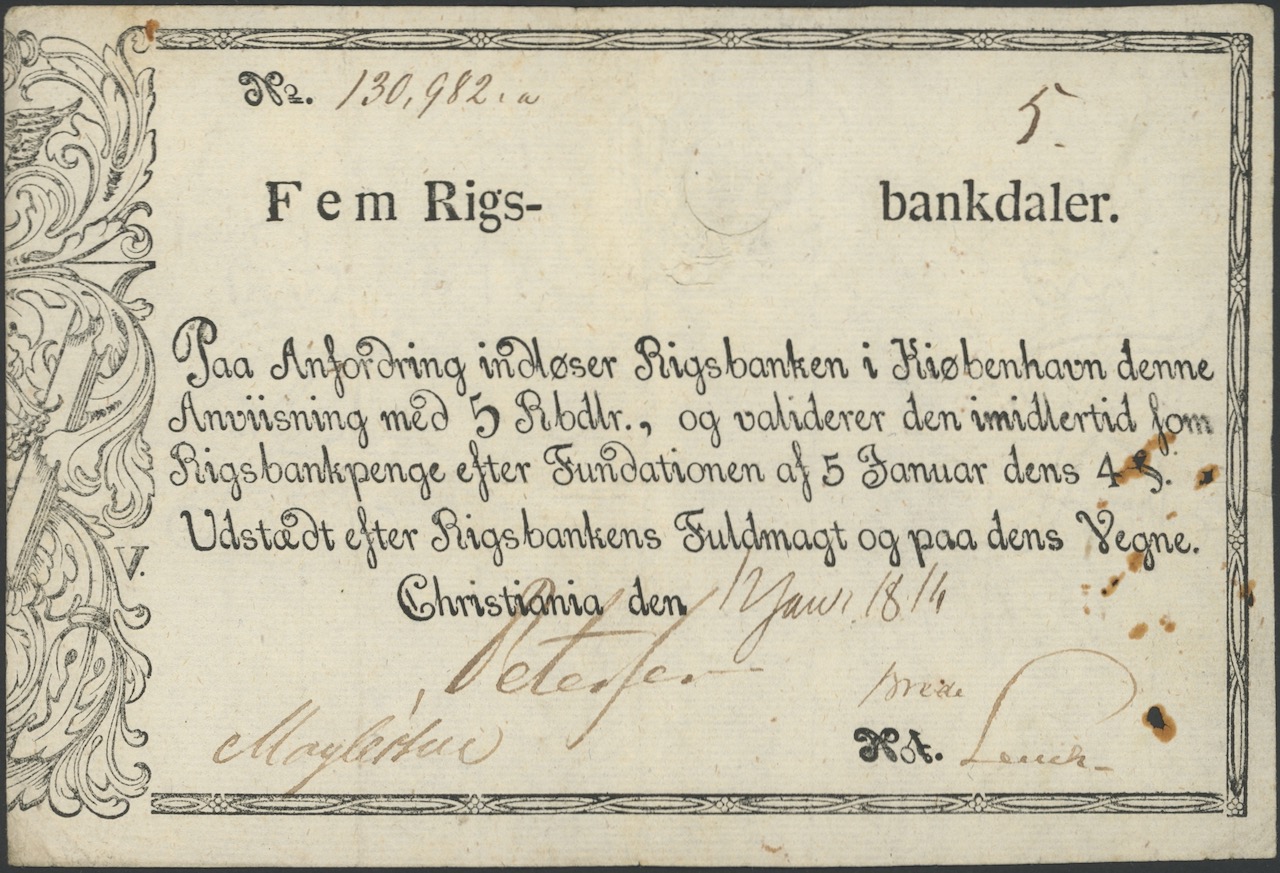 No. 130,982. a
5.
Fem Rigs- bankdaler.
Paa Anfordring indløser Rigsbanken i Kiøbenhavn denne
Anviisning med 5 Rbdlr., og validerer den imidlertid som
Rigsbankpenge efter Fundationen af 5 Januar dens 4 §.
Udstædt efter Rigsbankens Fuldmagt og paa dens Vegne.
V.
Christiania den 12 Janr. 1814
Petersen